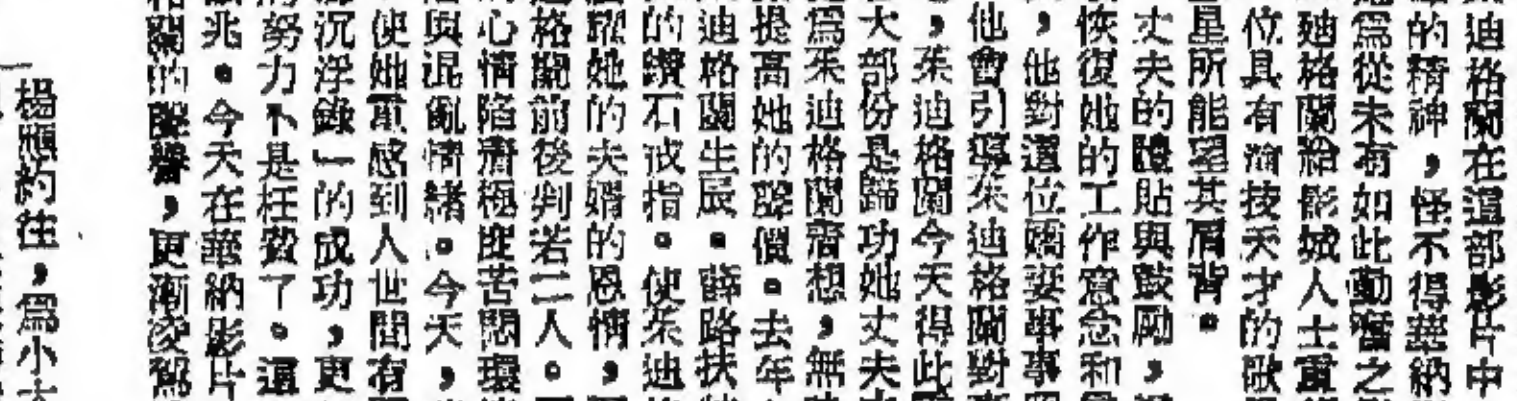 迪格蘭在這部影片中
的精神，怪不得華納
爲從未有如此動奮之
廸格蘭給影城人士重
位具有演技天才的歌
星所能望其肩背。
丈夫的體貼與鼓勵，
恢復她的工作意念和
，他對這位嬌妻事事
他會引導茱迪格蘭對
，茱迪格蘭今天得此
大部份是歸功她丈夫
爲茱迪格蘭着想，無
提高她的聲價。去年
迪格蘭生辰。薛路扶
的鑽石戒指。使茱迪
她的夫婿的恩情，
格蘭前後判若二人。
心情陷着極度苦悶環
與混亂情緒。今天，
使她重感到人世間有
沉浮錄」的成功，更
努力不是枉費了。這
兆。今天在華納影片
格蘭的聲譽，更漸凌駕
楊應約往，爲小